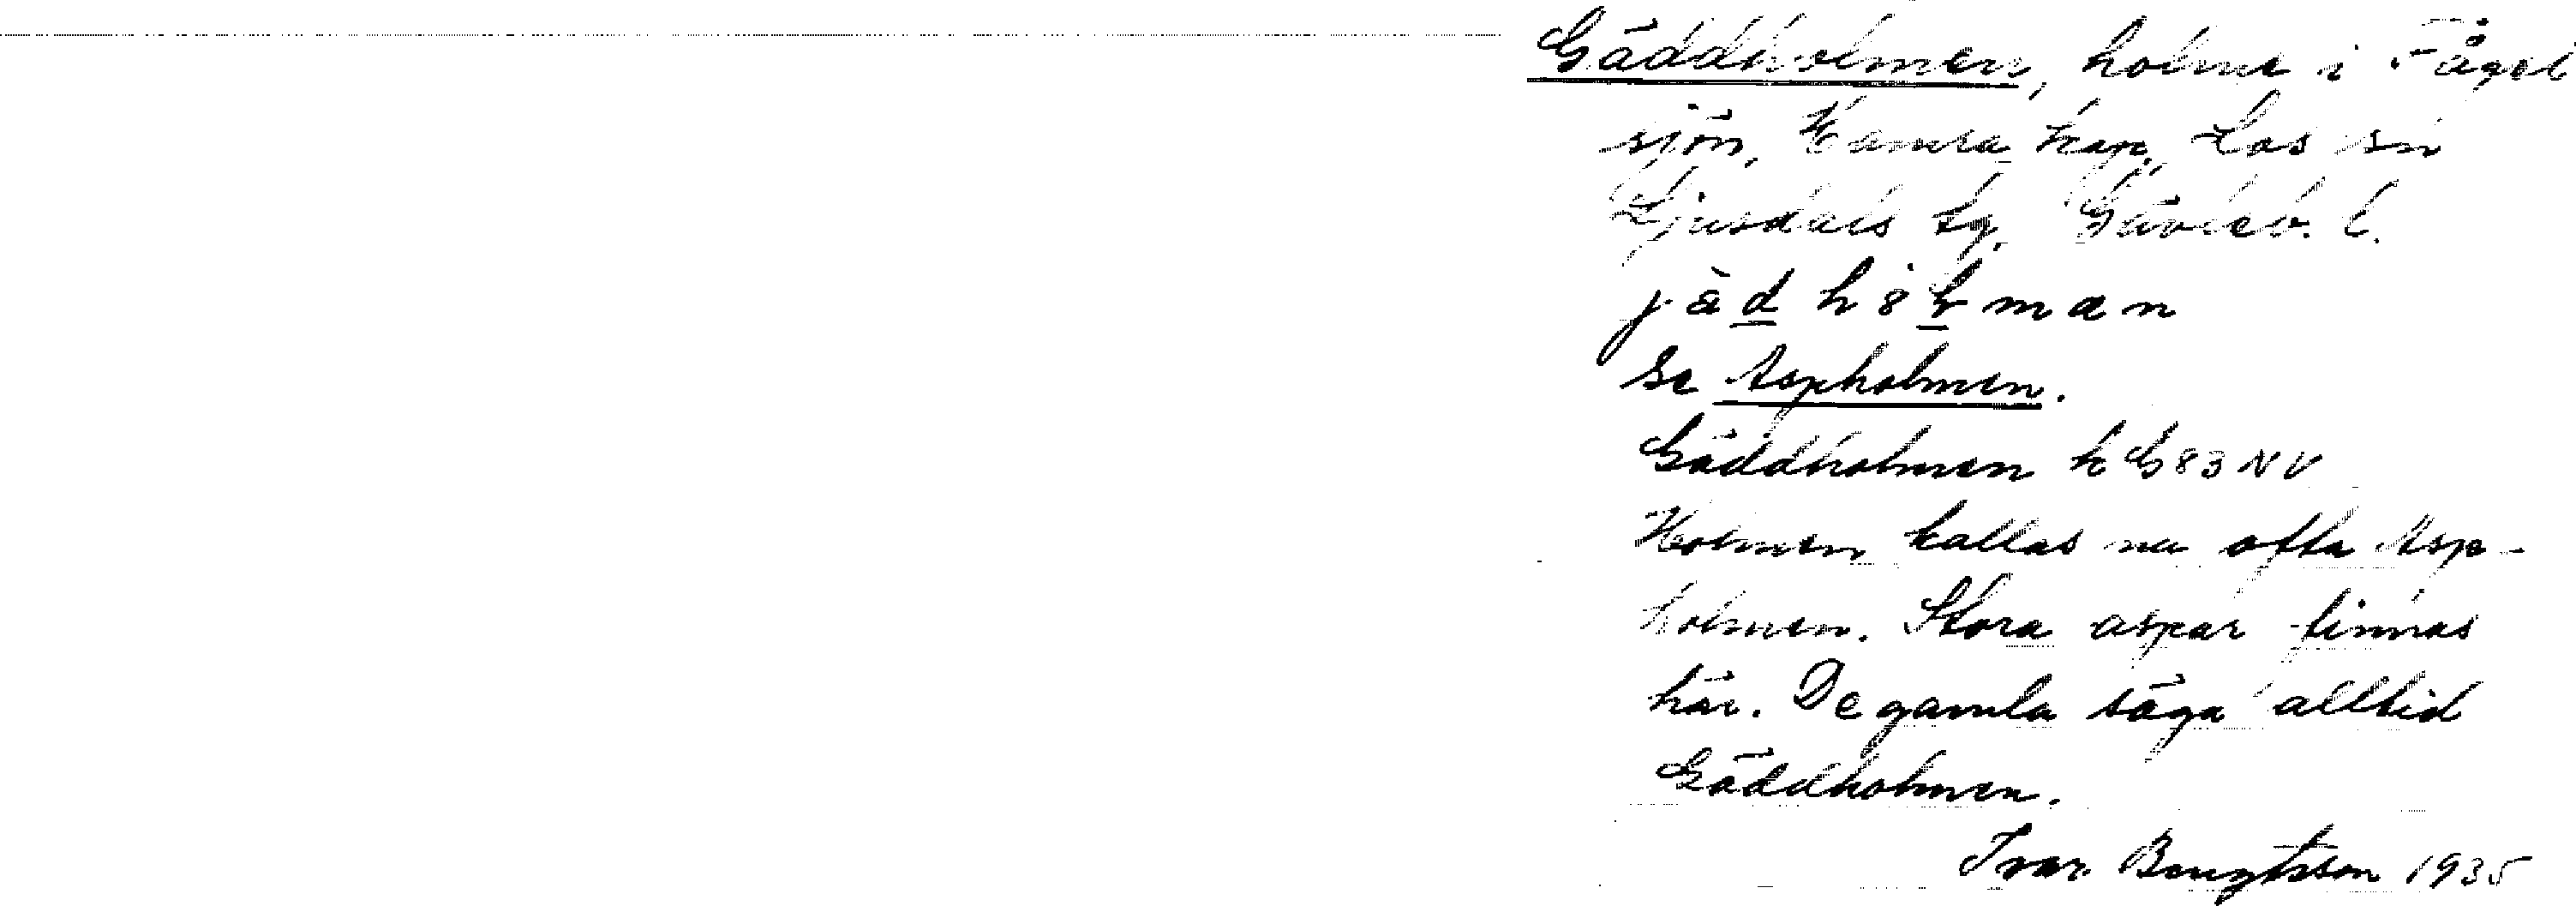 Gäddholmen, holme i Fågel
sjön, Hamra kap., Los sn
Ljusdals tg. Gävleb. l.
Se Aspholmen.
Gäddholmen k G83 NV
Holmen kallas nu ofta Asp-
holmen. Stora aspar finnas
här. De gamla säga alltid
Gäddholmen.
Ivar Bengtsson 1935